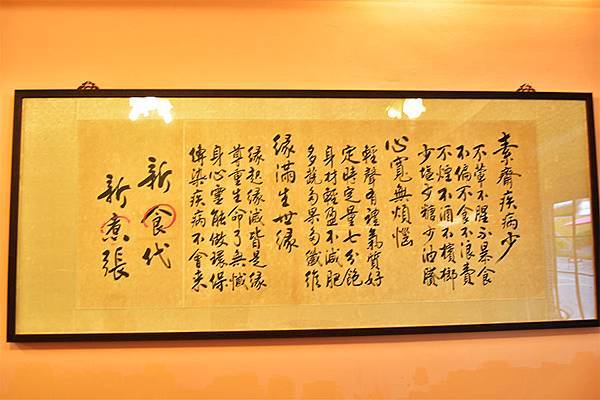 素齋疾病少
不葷不腥不暴食
不偏不貪不浪費
不煙不酒不檳榔
少塩少糖少油膩
心寬無煩惱
輕聲有禮氣質好
定時定量七分飽
身材輕盈不減肥
多蔬多果多纖維
緣滿生世緣
緣起緣滅皆是緣
尊重生命了無憾
身心靈能做環保
傳染疾病不會來
新食代
新煮張